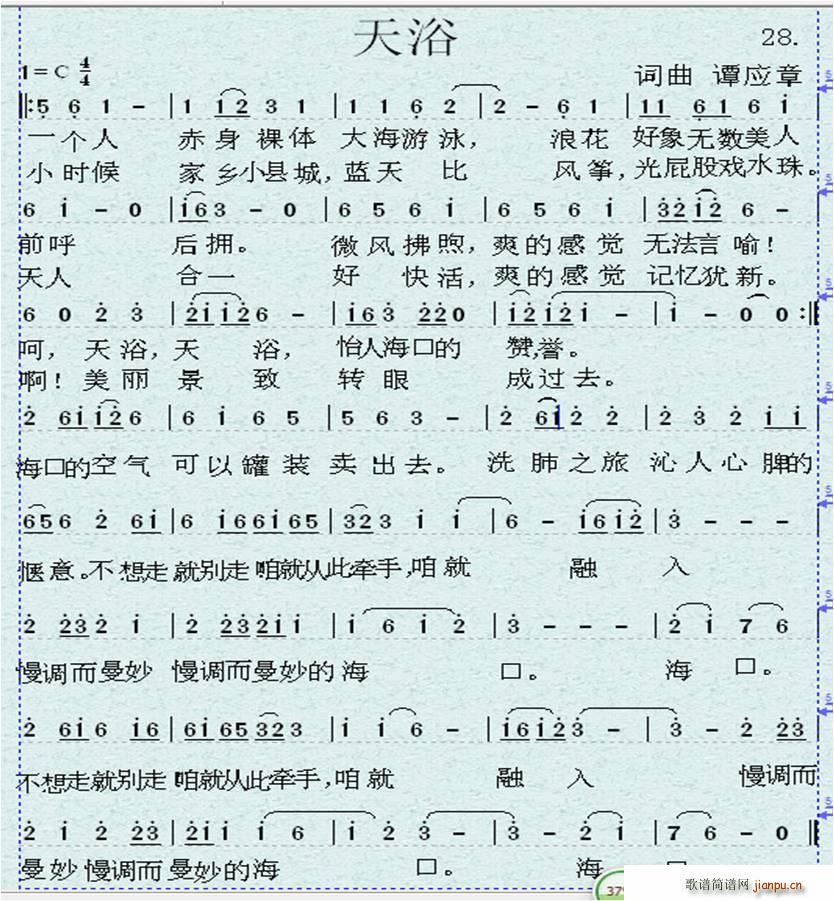 天浴
28.
1=C 4/4
词曲 谭应章
‖: 5̣ 6̣ 1 - | 1 1 2 3 1 | 1 1 6̣ 2 | 2 - 6̣ 1 | 1 1 6̣ 1 6 i |
一个人 赤身裸体 大海游泳, 浪花 好象无数美人
小时候 家乡小县城,蓝天 比 风筝,光屁股戏水珠。
6 i - 0 | i 6 3 - 0 | 6 5 6 i | 6 5 6 i | 3̇ 2̇ i 2̇ 6 - |
前呼 后拥。 微风拂煦,爽的感觉 无法言喻!
天人 合一 好 快活,爽的感觉 记忆犹新。
6 0 2̇ 3̇ | 2̇ i i 2̇ 6 - | i 6 3̇ 2̇ 2̇ 0 | i 2̇ i 2̇ i - | i - 0 0 :‖
呵, 天浴,天 浴, 怡人海口的 赞,誉。
啊! 美丽 景 致 转眼 成过去。
2̇ 6 i i 2̇ 6 | 6 i 6 5 | 5 6 3 - | 2̇ 6 i 2̇ 2̇ | 2̇ 3̇ 2̇ i i |
海口的空气 可以罐装 卖出去。 洗肺之旅 沁人心脾的
6 5 6 2̇ 6 i | 6 i 6 6 i 6 5 | 3 2 3 i i | 6 - i 6 i 2̇ | 3̇ - - - |
惬意。不想走就别走 咱就从此牵手,咱就 融 入
2̇ 2̇ 3̇ 2̇ i | 2̇ 2̇ 3̇ 2̇ i i | i 6 i 2̇ | 3̇ - - - | 2̇ i 7 6
慢调而曼妙 慢调而曼妙的海 口。 海 口。
2̇ 6 i 6 i 6 | 6 i 6 5 3 2 3 | i i 6 - | i 6 i 2̇ 3̇ - | 3̇ - 2̇ 2̇ 3̇ |
不想走就别走 咱就从此牵手,咱就 融 入 慢调而
2̇ i 2̇ 2̇ 3̇ | 2̇ i i i 6 | i 2̇ 3̇ - | 3̇ - 2̇ i | 7 6 - 0 ‖
曼妙 慢调而曼妙的海 口。 海
歌谱简谱网 jianpu.cn